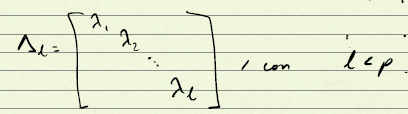 Λℓ = [ λ₁ λ₂ ⋱ λℓ ] , con ℓ < p